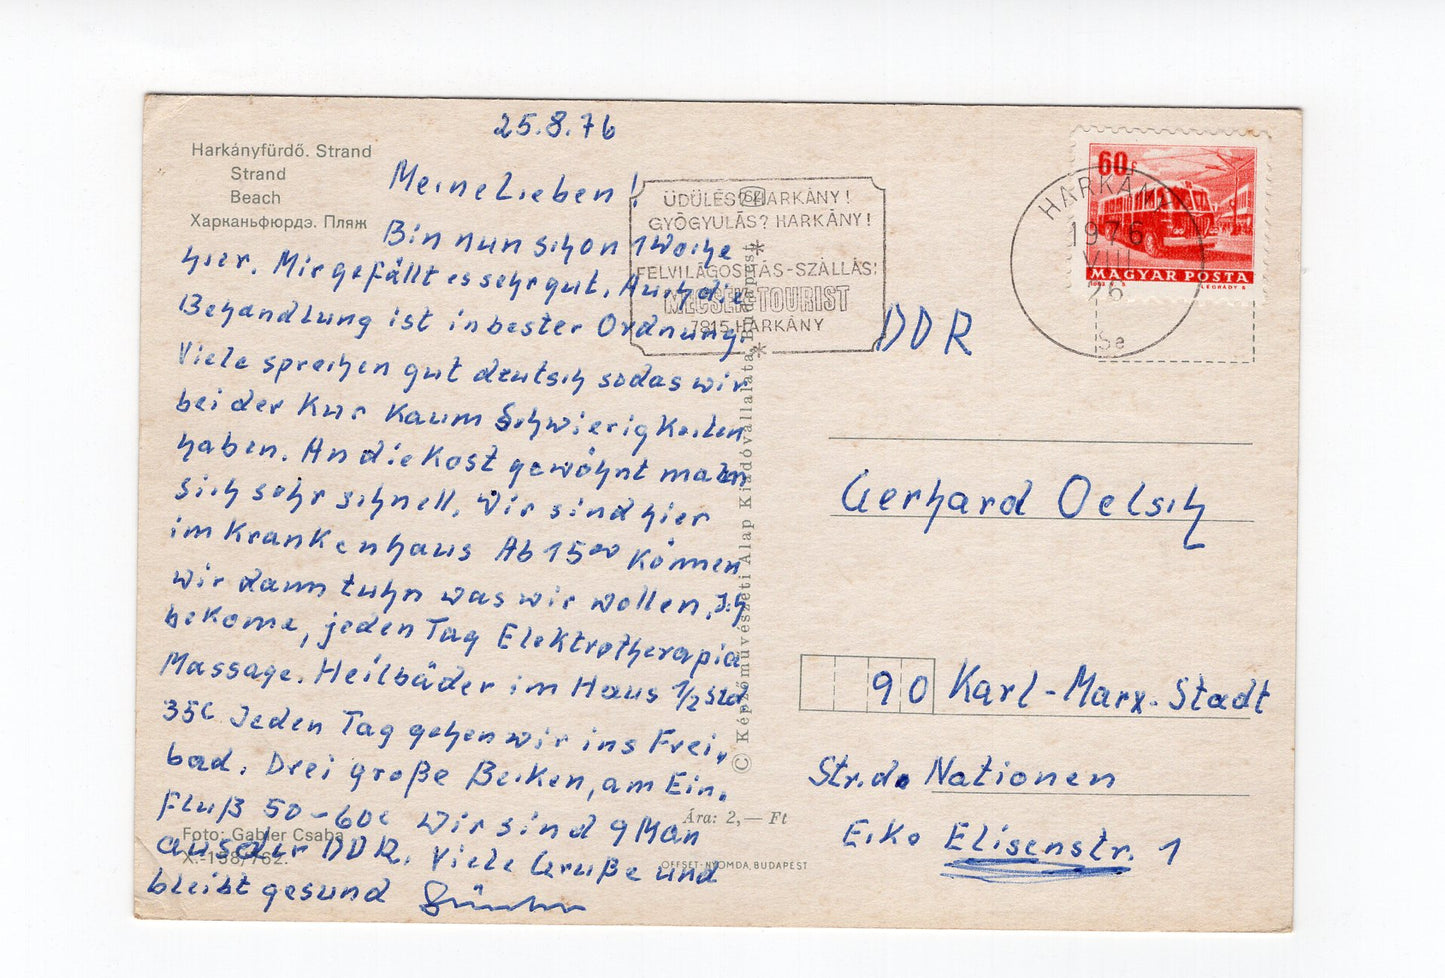 Harkányfürdő. Strand
Strand
Beach
Харканьфюрдэ. Пляж
25.8.76
Meine Lieben!
Bin nun schon 1 Woche
hier. Mir gefällt es sehr gut. Auch die
Behandlung ist in bester Ordnung.
Viele sprechen gut deutsch sodas wir
bei der Kur Kaum Schwierigkeiten
haben. An die Kost gewöhnt man
sich sehr schnell. Wir sind hier
im Krankenhaus Ab 15⁰⁰ Können
wir dann tuhn was wir wollen. Ich
bekome, jeden Tag Elektrotherapia
Massage. Heilbäder im Haus 1/2 Std
35c Jeden Tag gehen wir ins Frei,
bad. Drei große Becken, am Ein,
Fluß 50-60c Wir sind 9 Man
aus der DDR. Viele Gruße und
bleibt gesund
Foto: Gabler Csaba
ÜDÜLÉS? HARKÁNY!
GYÓGYULÁS? HARKÁNY!
FELVILÁGOSITÁS-SZÁLLÁS:
MECSEK-TOURIST
7815 HARKÁNY
© Képzőművészeti Alap Kiadóvállalata, Budapest
Ára: 2,— Ft
OFFSET-NYOMDA, BUDAPEST
60f
MAGYAR POSTA
LÉGRÁDY S
HARKÁNY
1976
VIII
26
Se
DDR
Gerhard Oelsch
90 Karl-Marx-Stadt
Str. d. Nationen
Eke Elisenstr. 1